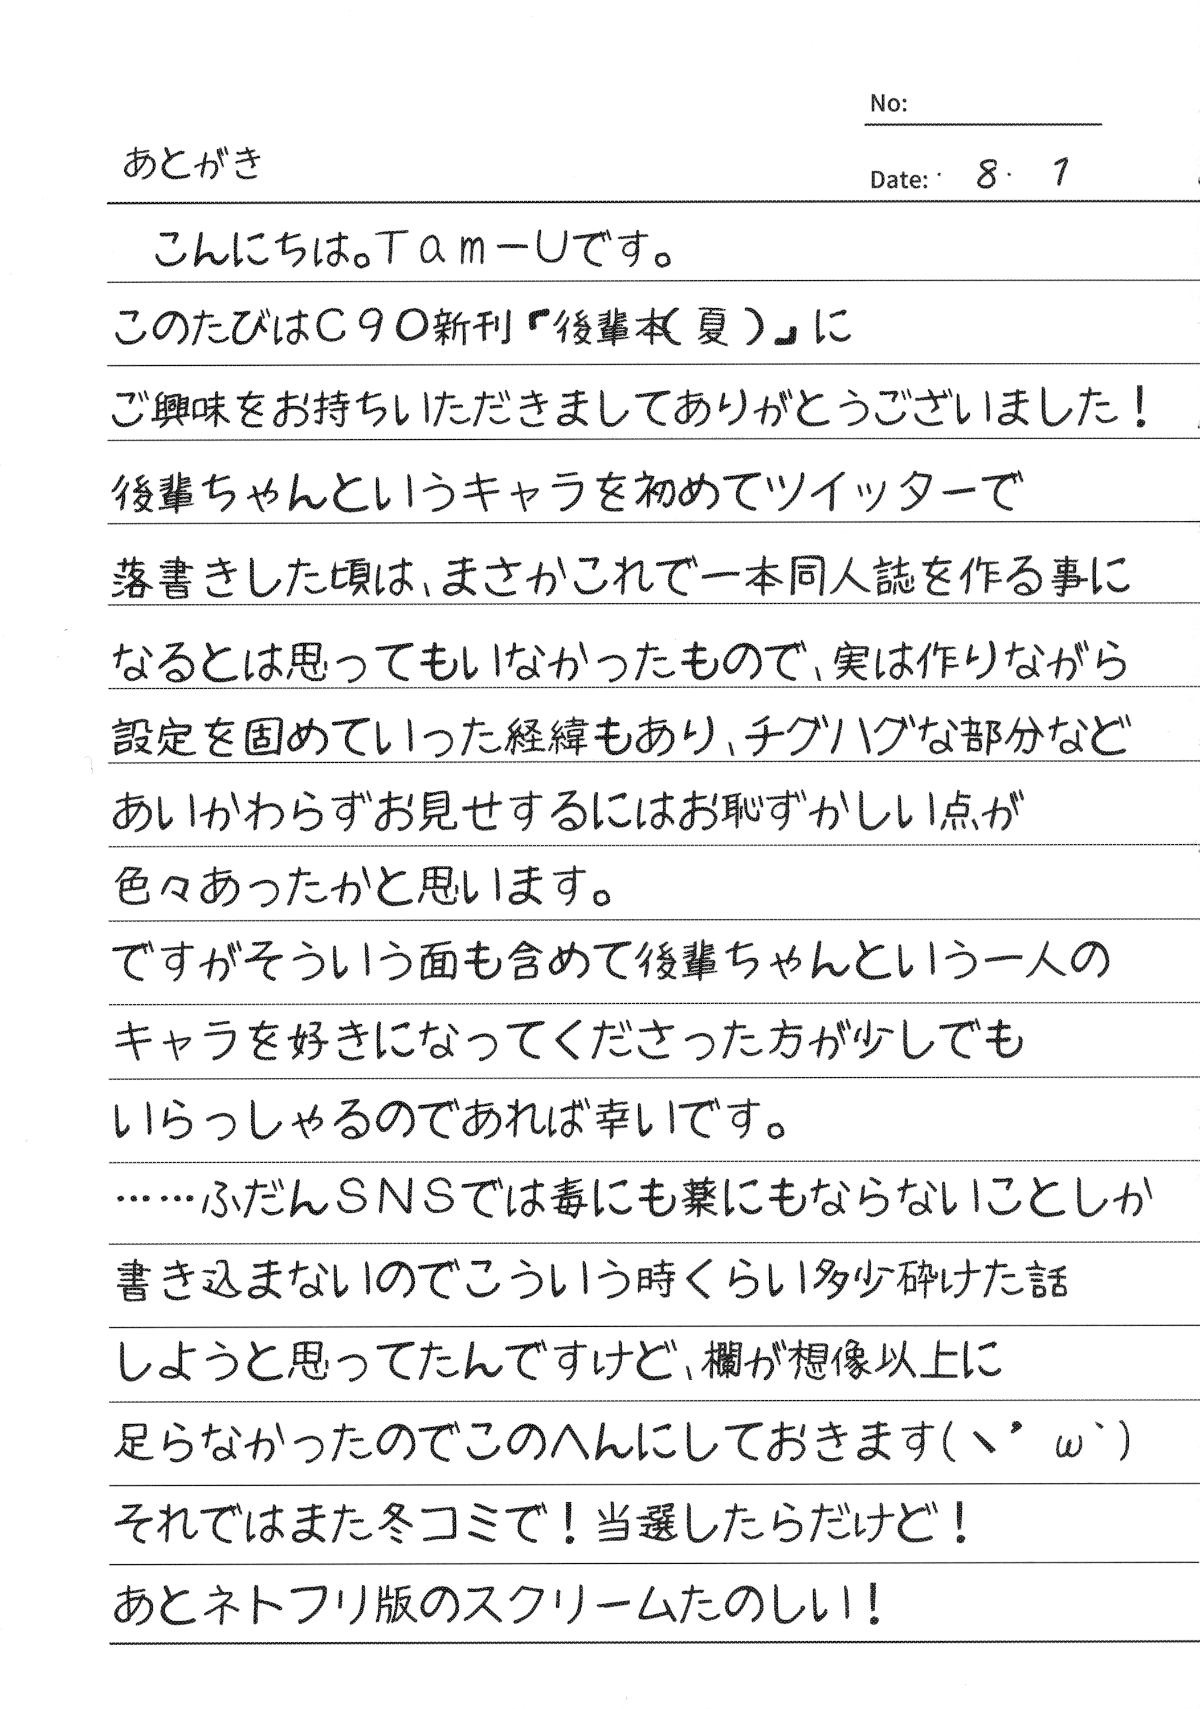 No:
あとがき
Date: ・ 8・ 1
こんにちは。Tam－Uです。
このたびはC90新刊『後輩本(夏)』に
ご興味をお持ちいただきましてありがとうございました！
後輩ちゃんというキャラを初めてツイッターで
落書きした頃は、まさかこれで一本同人誌を作る事に
なるとは思ってもいなかったもので、実は作りながら
設定を固めていった経緯もあり、チグハグな部分など
あいかわらずお見せするにはお恥ずかしい点が
色々あったかと思います。
ですがそういう面も含めて後輩ちゃんという一人の
キャラを好きになってくださった方が少しでも
いらっしゃるのであれば幸いです。
……ふだんSNSでは毒にも薬にもならないことしか
書き込まないのでこういう時くらい多少砕けた話
しようと思ってたんですけど、欄が想像以上に
足らなかったのでこのへんにしておきます(ヽ’ω`)
それではまた冬コミで！当選したらだけど！
あとネトフリ版のスクリームたのしい！